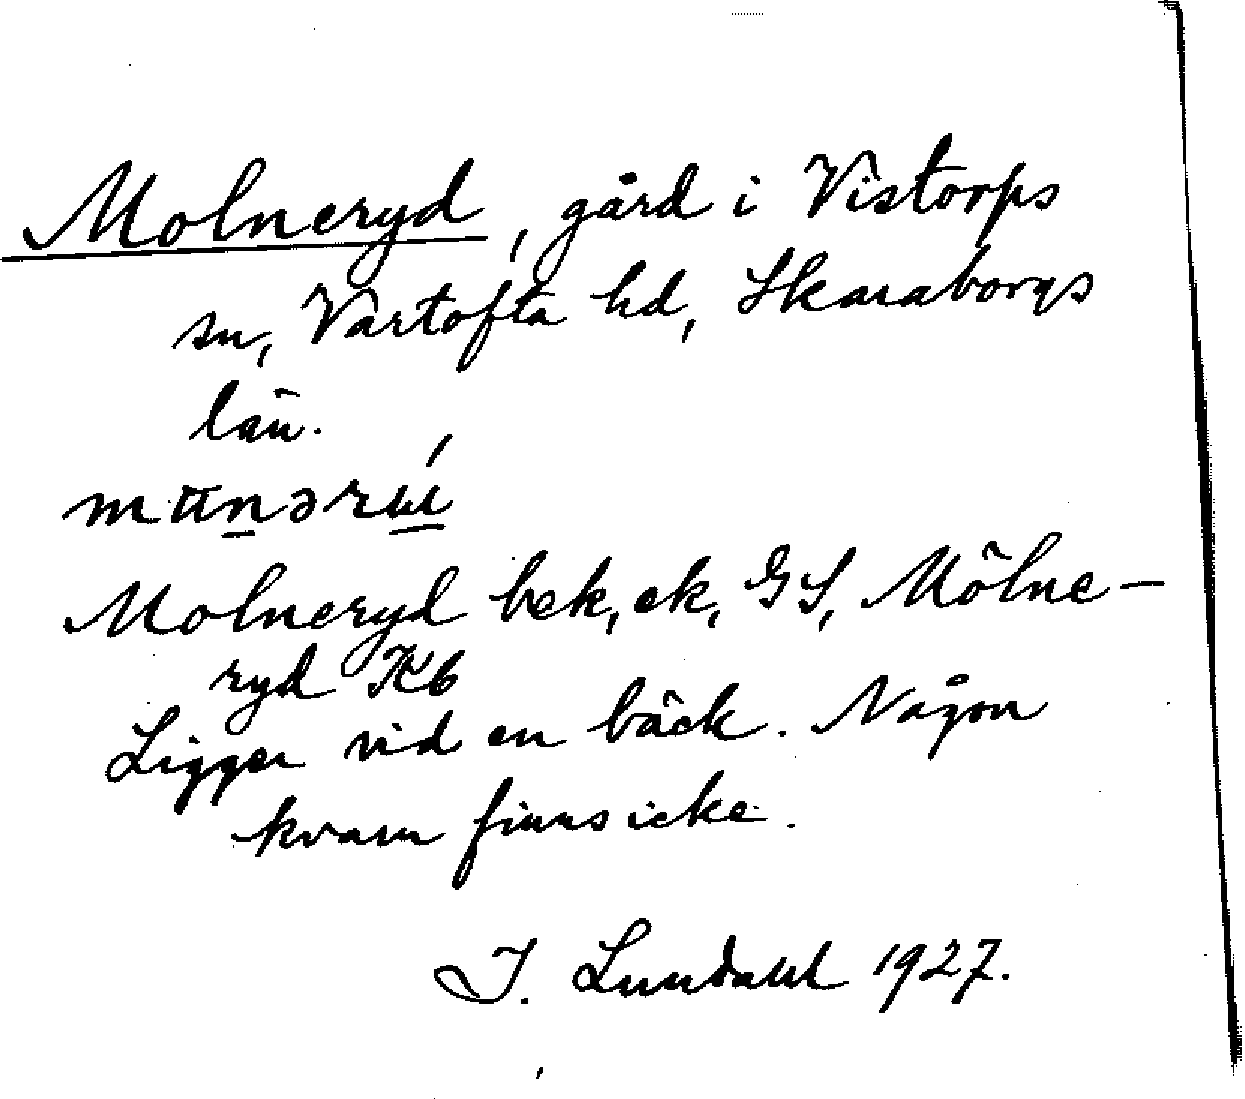 Molneryd, gård i Vistorps
sn, Vartofta hd, Skaraborgs
län.
Molneryd bek, ek, GS, Mölne-
ryd Kb
Ligger vid en bäck. Någon
kvarn finns icke.
I. Lundahl 1927.